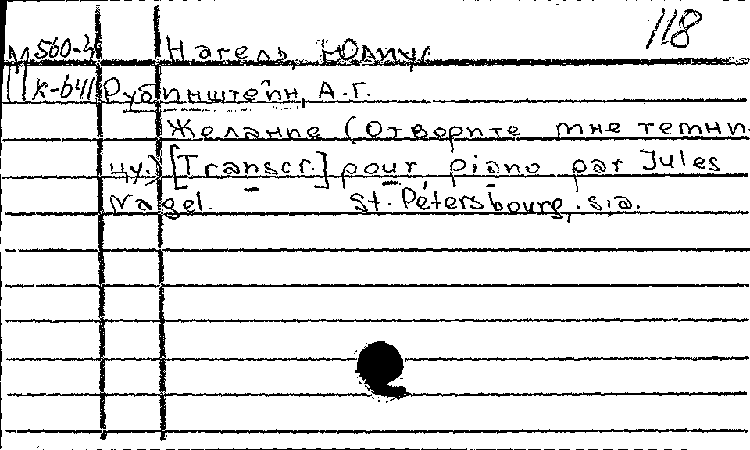 118
М 560-3 Нагель, Юлиус
К-641 Рубинштейн, А.Г.
Желание (Отворите мне темни-
цу.) [Transcr.] pour piano par Jules
Nagel. St. Pétersbourg, s.a.